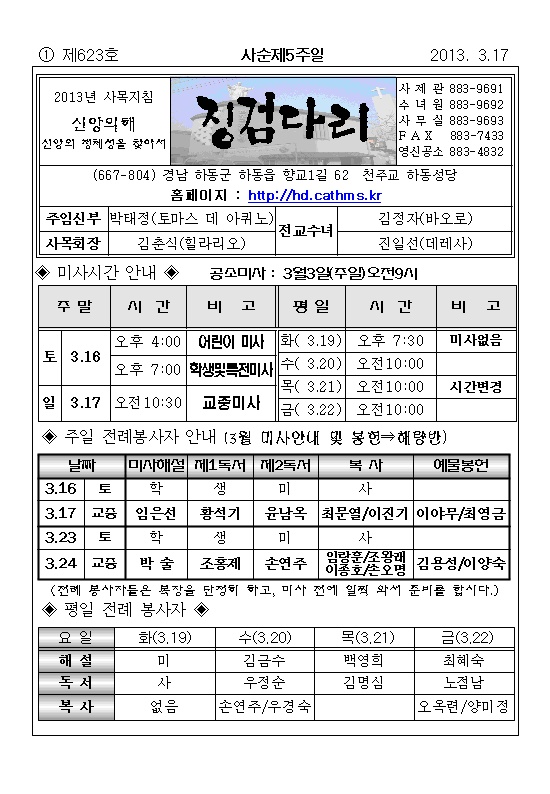 ① 제623호 사순제5주일 2013. 3.17
2013년 사목지침
신앙의해
신앙의 정체성을 찾아서
징검다리
사 제 관 883-9691
수 녀 원 883-9692
사 무 실 883-9693
F A X 883-7433
영신공소 883-4832
(667-804) 경남 하동군 하동읍 향교1길 62 천주교 하동성당
홈페이지 : http://hd.cathms.kr
주임신부 박태정(토마스 데 아퀴노) 전교수녀 김정자(바오로)
사목회장 김춘식(힐라리오) 진일선(데레사)
◈ 미사시간 안내 ◈ 공소미사 : 3월3일(주일)오전9시
주 말 시 간 비 고 평 일 시 간 비 고
토 3.16 오후 4:00 어린이 미사 화( 3.19) 오후 7:30 미사없음
오후 7:00 학생및특전미사 수( 3.20) 오전10:00
목( 3.21) 오전10:00 시간변경
일 3.17 오전10:30 교중미사 금( 3.22) 오전10:00
◈ 주일 전례봉사자 안내 (3월 미사안내 및 봉헌⇒해량반)
날짜 미사해설 제1독서 제2독서 복 사 예물봉헌
3.16 토 학 생 미 사
3.17 교중 임은선 황석기 윤남옥 최문열/이진기 이야무/최영금
3.23 토 학 생 미 사
3.24 교중 박 술 조홍제 손연주 임랑훈/조왕래 이종호/손오명 김용성/이양숙
(전례 봉사자들은 복장을 단정히 하고, 미사 전에 일찍 와서 준비를 합시다.)
◈ 평일 전례 봉사자 ◈
요 일 화(3.19) 수(3.20) 목(3.21) 금(3.22)
해 설 미 김금수 백영희 최혜숙
독 서 사 우정순 김명심 노점남
복 사 없음 손연주/우경숙 오옥련/양미정